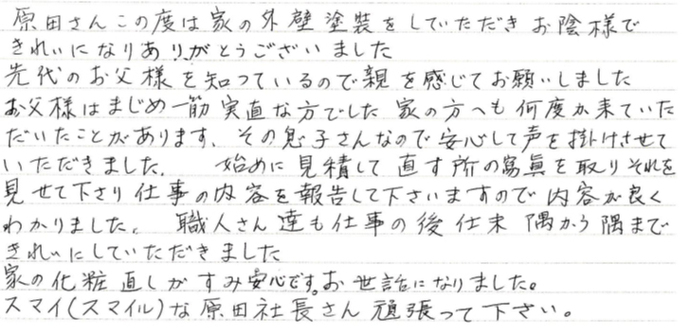 原田さんこの度は家の外壁塗装をしていただきお陰様で
きれいになりありがとうございました
先代のお父様を知っているので親を感じてお願いしました
お父様はまじめ一筋実直な方でした 家の方へも何度か来ていた
だいたことがあります、その息子さんなので安心して声を掛けさせて
いただきました。 始めに見積して直す所の寫眞を取りそれを
見せて下さり仕事の内容を報告して下さいますので内容が良く
わかりました。 職人さん達も仕事の後仕末 隅から隅まで
きれいにしていただきました
家の化粧直しがすみ安心です。お世話になりました。
スマイ(スマイル)な原田社長さん頑張って下さい。